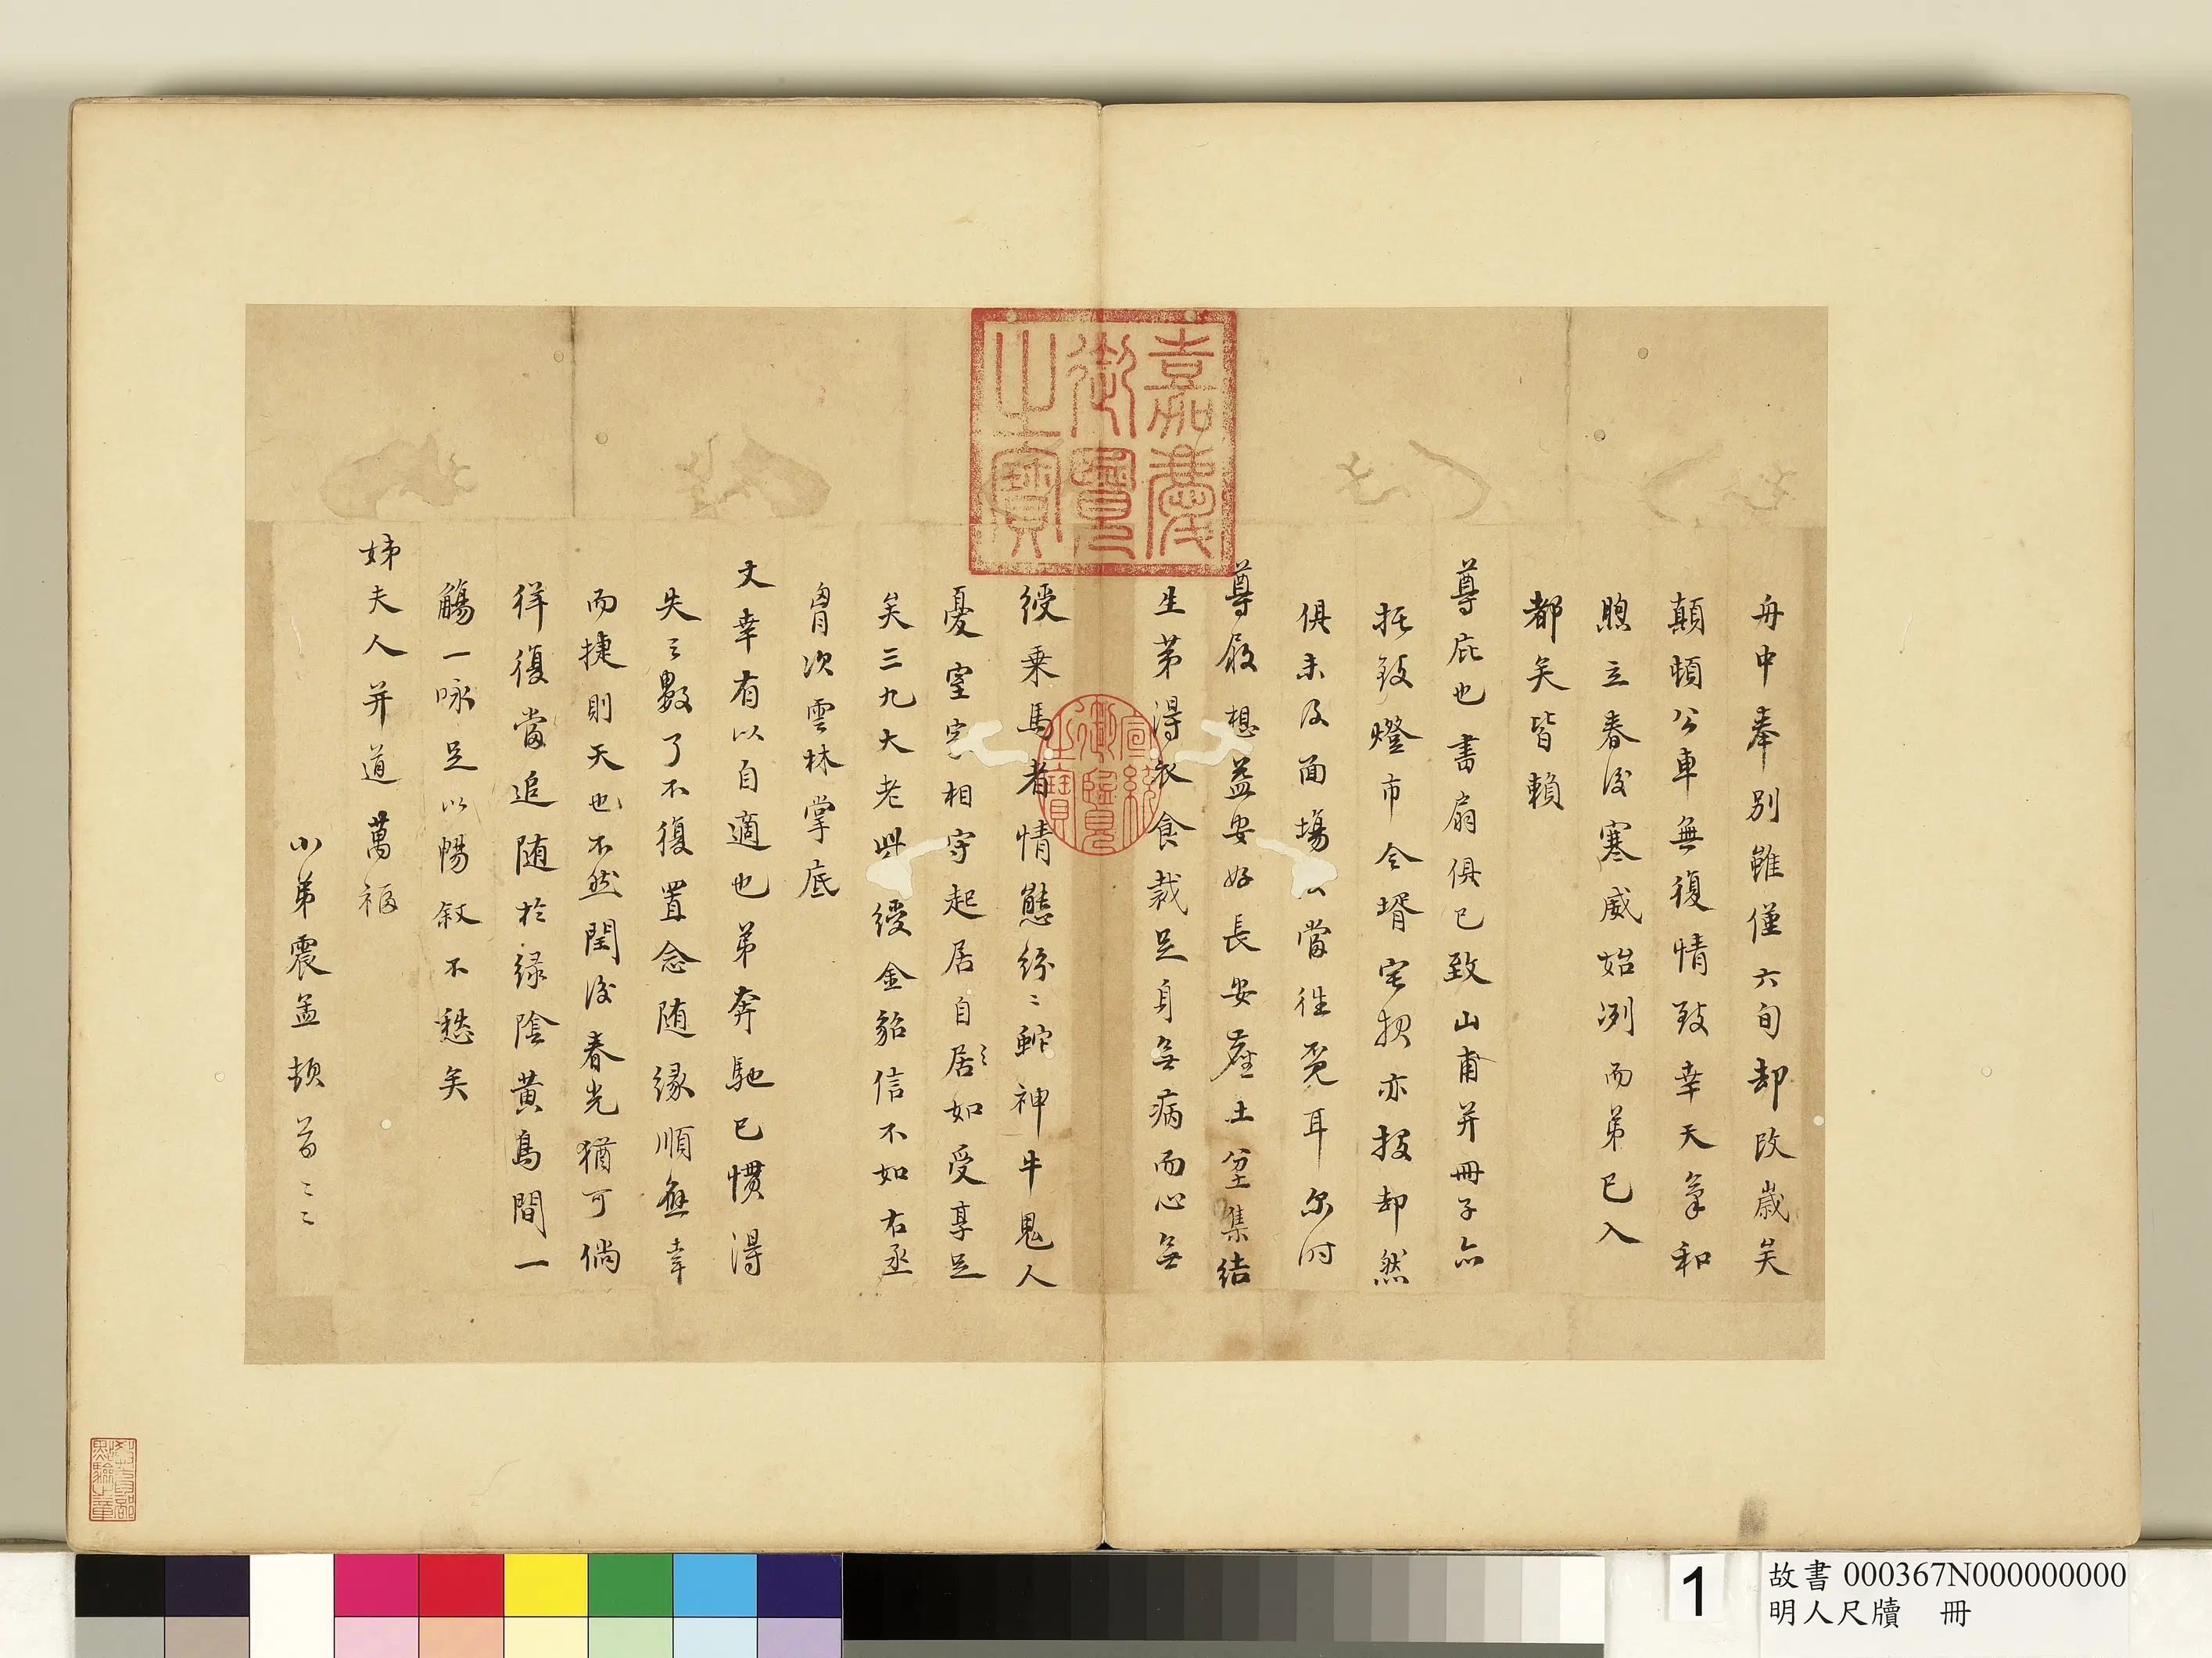 舟中奉別雖僅六旬却改歲矣
顛頓公車無復情致幸天氣和
煦立春後寒威始冽而弟已入
都矣皆賴
尊庇也書扇俱已致山甫并冊子亦
托致燈市令壻宅報亦投却然
俱未及面場 當往覓耳尔時
尊履想益安好長安塵土坌集結
生弟得衣食裁足身無病而心無
綬乘馬者情態紛〻蛇神牛鬼人
憂室家相守起居自居〻如受享足
矣三九大老 綬金貂信不如右丞
胷次雲林掌底
丈幸有以自適也弟奔馳已慣得
失之數了不復置念随緣順應幸
而捷則天也不然閏後春光猶可倘
徉復當追随於緑陰黃鳥間一
觴一咏足以暢叙不愁矣
姊夫人并道萬福
小弟震孟頓首〻〻
嘉慶御覽之寶
宣統御覽之寶
教育部點驗之章
1
故書 000367N000000000
明人尺牘 冊